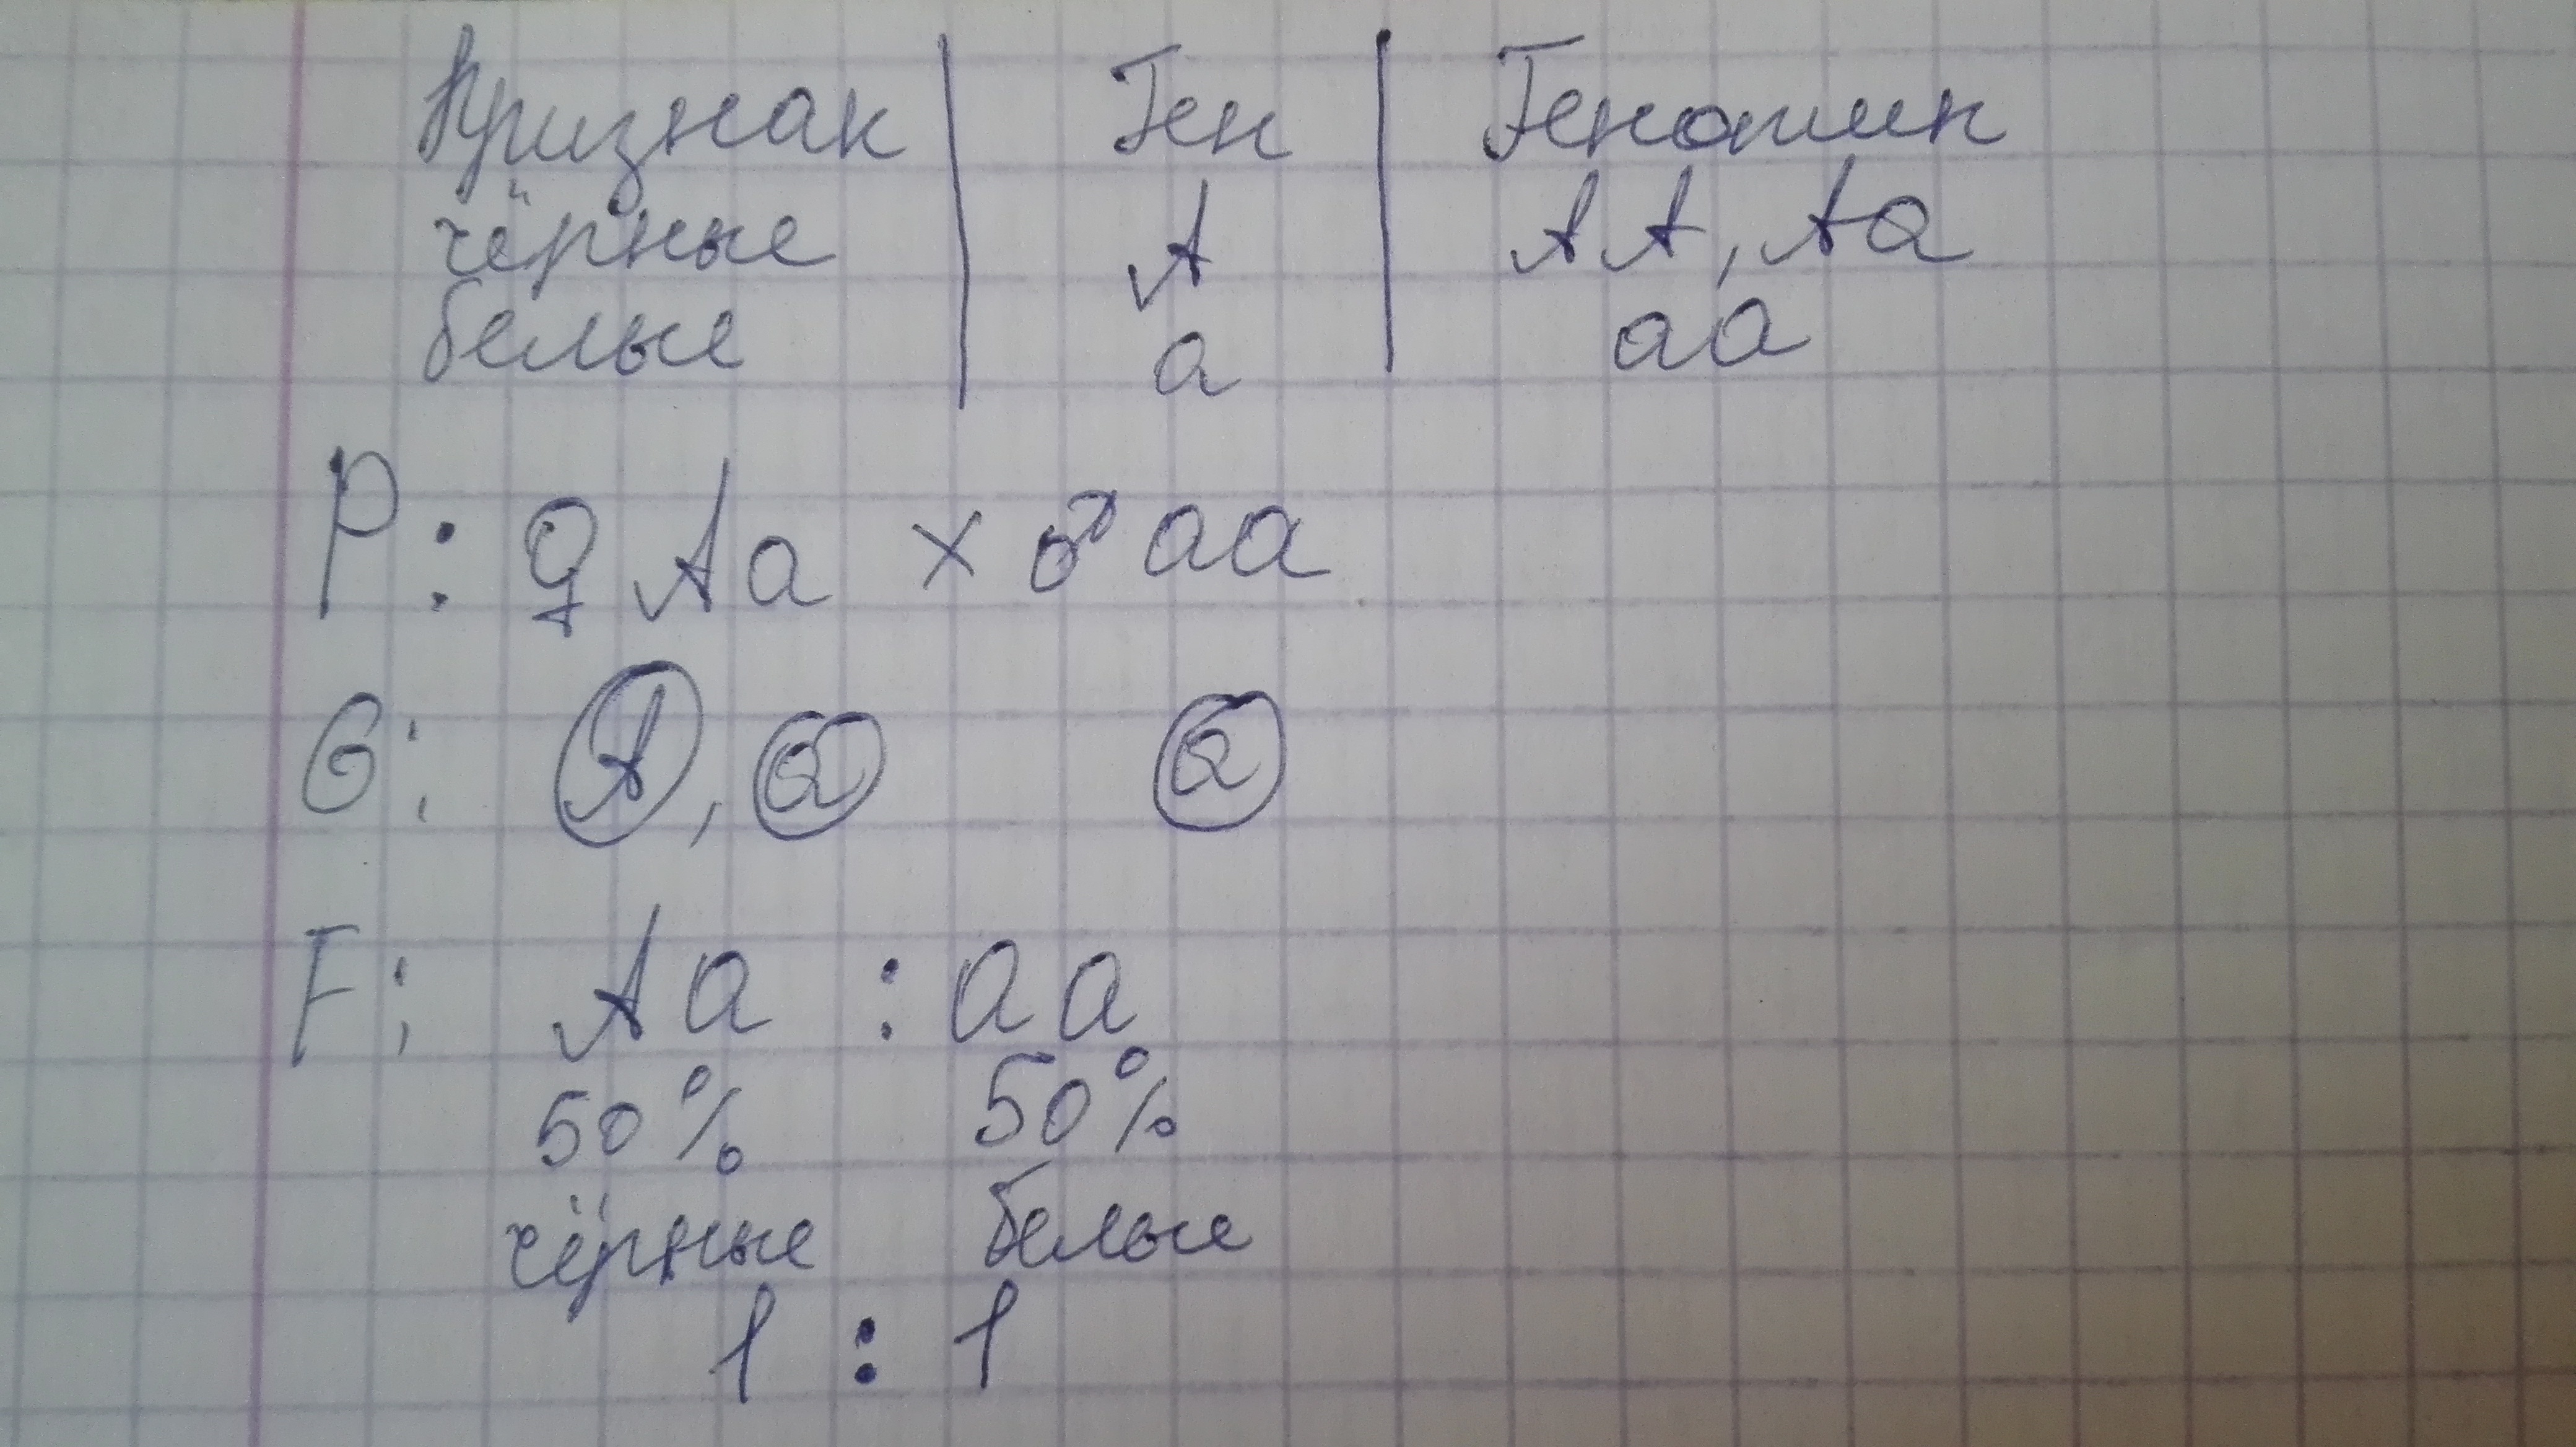 Признак | Ген | Генотип
чёрные A AA, Aa
белые a aa
P: ♀ Aa × ♂ aa
G: A, a a
F: Aa : aa
50% 50%
чёрные белые
1 : 1